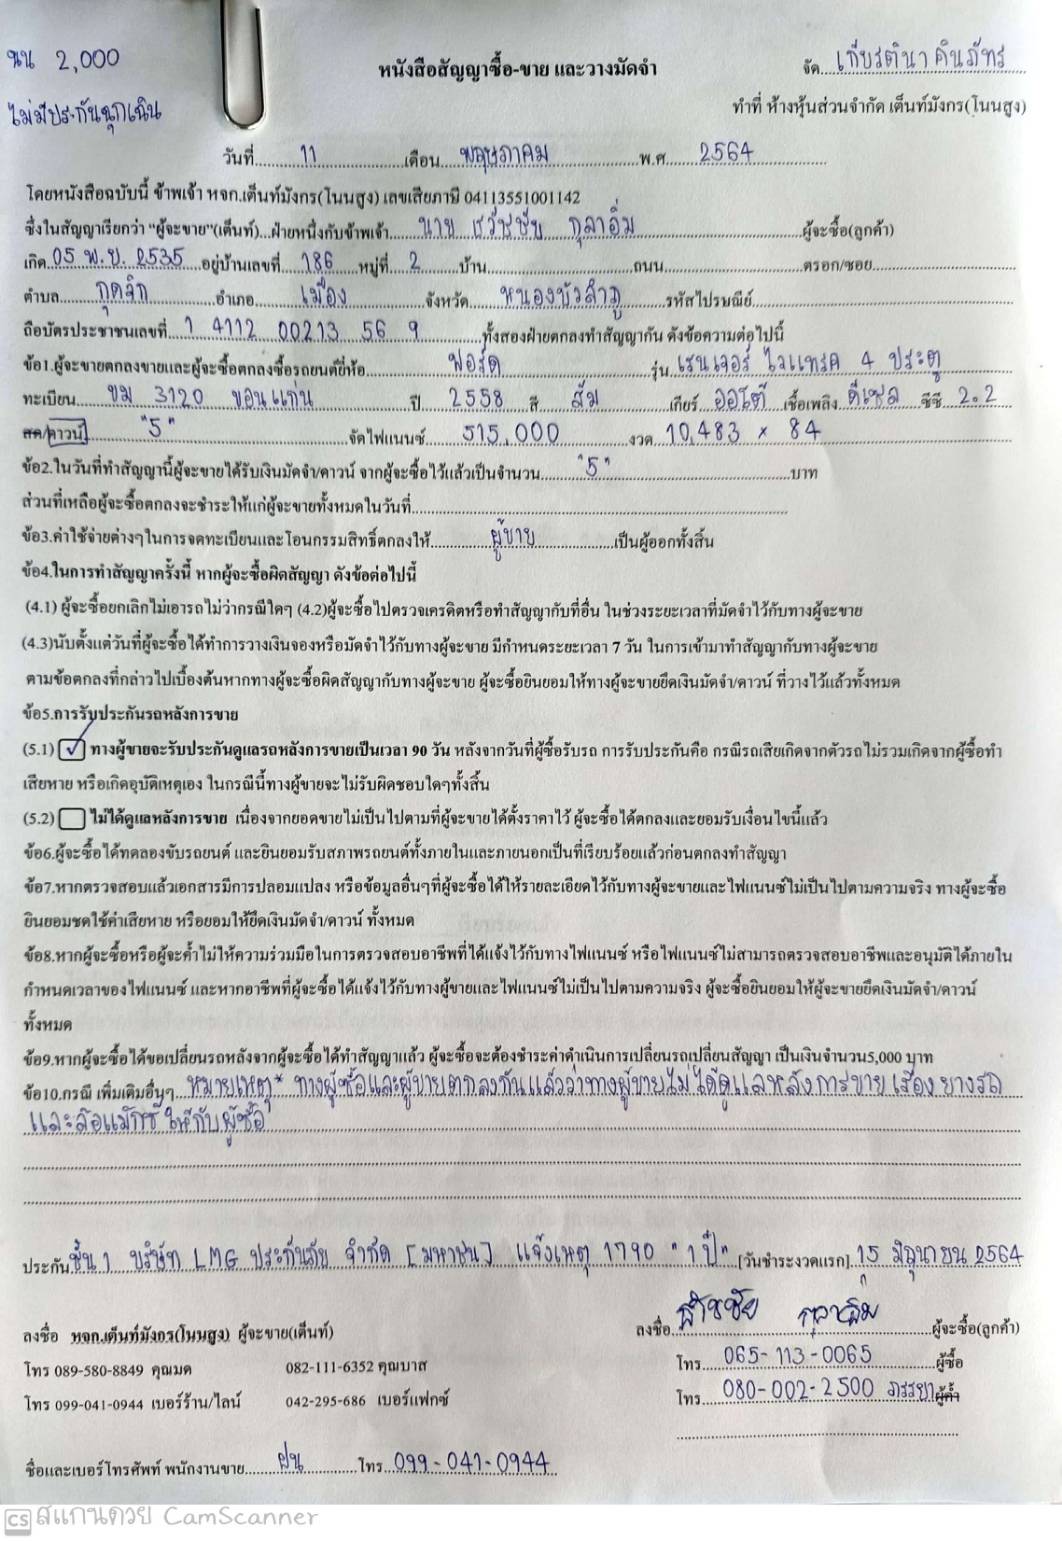 นน 2,000
ไม่มีประกันฉุกเฉิน
หนังสือสัญญาซื้อ-ขาย และวางมัดจำ
จัด เกียรตินาคินภัทร
ทำที่ ห้างหุ้นส่วนจำกัด เต็นท์มังกร(โนนสูง)
วันที่ 11 เดือน พฤษภาคม พ.ศ 2564
โดยหนังสือฉบับนี้ ข้าพเจ้า หจก.เต็นท์มังกร(โนนสูง) เลขเสียภาษี 04113551001142
ซึ่งในสัญญาเรียกว่า "ผู้จะขาย"(เต็นท์)...ฝ่ายหนึ่งกับข้าพเจ้า นาย ธวัชชัย กุลาอิ่ม ผู้จะซื้อ(ลูกค้า)
เกิด 05 พ.ย. 2535 อยู่บ้านเลขที่ 186 หมู่ที่ 2 บ้าน ถนน ตรอก/ซอย
ตำบล กุดจิก อำเภอ เมือง จังหวัด หนองบัวลำภู รหัสไปรษณีย์
ถือบัตรประชาชนเลขที่ 1 4112 00213 56 9 ทั้งสองฝ่ายตกลงทำสัญญากัน ดังข้อความต่อไปนี้
ข้อ1.ผู้จะขายตกลงขายและผู้จะซื้อตกลงซื้อรถยนต์ยี่ห้อ ฟอร์ด รุ่น เรนเจอร์ ไวแทรค 4 ประตู
ทะเบียน ขม 3120 ขอนแก่น ปี 2558 สี ส้ม เกียร์ ออโต้ เชื้อเพลิง ดีเซล ซีซี 2.2
สด/ดาวน์ "5" จัดไฟแนนซ์ 515,000 งวด 10,483 x 84
ข้อ2.ในวันที่ทำสัญญานี้ผู้จะขายได้รับเงินมัดจำ/ดาวน์ จากผู้จะซื้อไว้แล้วเป็นจำนวน "5" บาท
ส่วนที่เหลือผู้จะซื้อตกลงจะชำระให้แก่ผู้จะขายทั้งหมดในวันที่
ข้อ3.ค่าใช้จ่ายต่างๆในการจดทะเบียนและโอนกรรมสิทธิ์ตกลงให้ ผู้ขาย เป็นผู้ออกทั้งสิ้น
ข้อ4.ในการทำสัญญาครั้งนี้ หากผู้จะซื้อผิดสัญญา ดังข้อต่อไปนี้
(4.1) ผู้จะซื้อยกเลิกไม่เอารถไม่ว่ากรณีใดๆ (4.2)ผู้จะซื้อไปตรวจเครดิตหรือทำสัญญากับที่อื่น ในช่วงระยะเวลาที่มัดจำไว้กับทางผู้จะขาย
(4.3)นับตั้งแต่วันที่ผู้จะซื้อได้ทำการวางเงินจองหรือมัดจำไว้กับทางผู้จะขาย มีกำหนดระยะเวลา 7 วัน ในการเข้ามาทำสัญญากับทางผู้จะขาย
ตามข้อตกลงที่กล่าวไปเบื้องต้นหากทางผู้จะซื้อผิดสัญญากับทางผู้จะขาย ผู้จะซื้อยินยอมให้ทางผู้จะขายยึดเงินมัดจำ/ดาวน์ ที่วางไว้แล้วทั้งหมด
ข้อ5.การรับประกันรถหลังการขาย
(5.1) ✓ ทางผู้ขายจะรับประกันดูแลรถหลังการขายเป็นเวลา 90 วัน หลังจากวันที่ผู้ซื้อรับรถ การรับประกันคือ กรณีรถเสียเกิดจากตัวรถ ไม่รวมเกิดจากผู้ซื้อทำ
เสียหาย หรือเกิดอุบัติเหตุเอง ในกรณีนี้ทางผู้ขายจะไม่รับผิดชอบใดๆทั้งสิ้น
(5.2) ไม่ได้ดูแลหลังการขาย เนื่องจากยอดขายไม่เป็นไปตามที่ผู้จะขายได้ตั้งราคาไว้ ผู้จะซื้อได้ตกลงและยอมรับเงื่อนไขนี้แล้ว
ข้อ6.ผู้จะซื้อได้ทดลองขับรถยนต์ และยินยอมรับสภาพรถยนต์ทั้งภายในและภายนอกเป็นที่เรียบร้อยแล้วก่อนตกลงทำสัญญา
ข้อ7.หากตรวจสอบแล้วเอกสารมีการปลอมแปลง หรือข้อมูลอื่นๆที่ผู้จะซื้อได้ให้รายละเอียดไว้กับทางผู้จะขายและไฟแนนซ์ไม่เป็นไปตามความจริง ทางผู้จะซื้อ
ยินยอมชดใช้ค่าเสียหาย หรือยอมให้ยึดเงินมัดจำ/ดาวน์ ทั้งหมด
ข้อ8.หากผู้จะซื้อหรือผู้จะค้ำไม่ให้ความร่วมมือในการตรวจสอบอาชีพที่ได้แจ้งไว้กับทางไฟแนนซ์ หรือไฟแนนซ์ไม่สามารถตรวจสอบอาชีพและอนุมัติได้ภายใน
กำหนดเวลาของไฟแนนซ์ และหากอาชีพที่ผู้จะซื้อได้แจ้งไว้กับทางผู้ขายและไฟแนนซ์ไม่เป็นไปตามความจริง ผู้จะซื้อยินยอมให้ผู้จะขายยึดเงินมัดจำ/ดาวน์
ทั้งหมด
ข้อ9.หากผู้จะซื้อได้ขอเปลี่ยนรถหลังจากผู้จะซื้อได้ทำสัญญาแล้ว ผู้จะซื้อจะต้องชำระค่าดำเนินการเปลี่ยนรถเปลี่ยนสัญญา เป็นเงินจำนวน5,000 บาท
ข้อ10.กรณี เพิ่มเติมอื่นๆ หมายเหตุ* ทางผู้ซื้อและผู้ขายตกลงกันแล้วว่าทางผู้ขายไม่ได้ดูแลหลังการขาย เรื่องยางรถ
และล้อแม๊กซ์ ให้กับผู้ซื้อ
ประกัน ชั้น 1 บริษัท LMG ประกันภัย จำกัด [มหาชน] แจ้งเหตุ 1790 "1 ปี" [วันชำระงวดแรก] 15 มิถุนายน 2564
ลงชื่อ หจก.เต็นท์มังกร(โนนสูง) ผู้จะขาย(เต็นท์)
ลงชื่อ ธวัชชัย กุลาอิ่ม ผู้จะซื้อ(ลูกค้า)
โทร 089-580-8849 คุณมด 082-111-6352 คุณบาส
โทร 065-113-0065 ผู้ซื้อ
โทร 099-041-0944 เบอร์ร้าน/ไลน์ 042-295-686 เบอร์แฟกซ์
โทร 080-002-2500 ภรรยา ผู้ค้ำ
ชื่อและเบอร์โทรศัพท์ พนักงานขาย ฝน โทร 099-041-0944
CS สแกนด้วย CamScanner